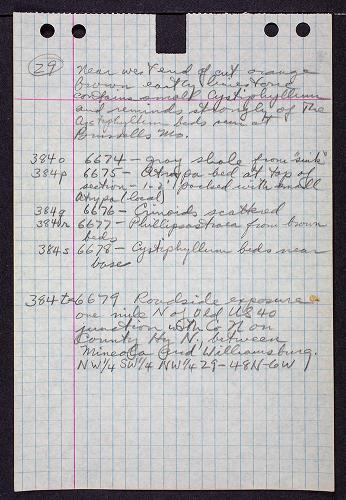 29
near west end of cut orange
brown earthy limestone
contains small Cystiphyllum
and reminds strongly of the
Cystiphyllum beds seen at
Mo.
384o 6674 — gray shale from "sink"
384p 6675 — Atrypa bed at top of
section - 1-2' packed with small
Atrypa (local)
384q 6676 — Crinoids scattered
384r 6677 — Phillipsastraea from brown
beds
384s 6678 — Cystiphyllum beds near
base
384ta 6679 Roadside exposure
one mile N of Old US 40
junction with Co N on
County Hy N, between
Mineola and Williamsburg.
NW¼ SW¼ NW¼ 29-48N-6W